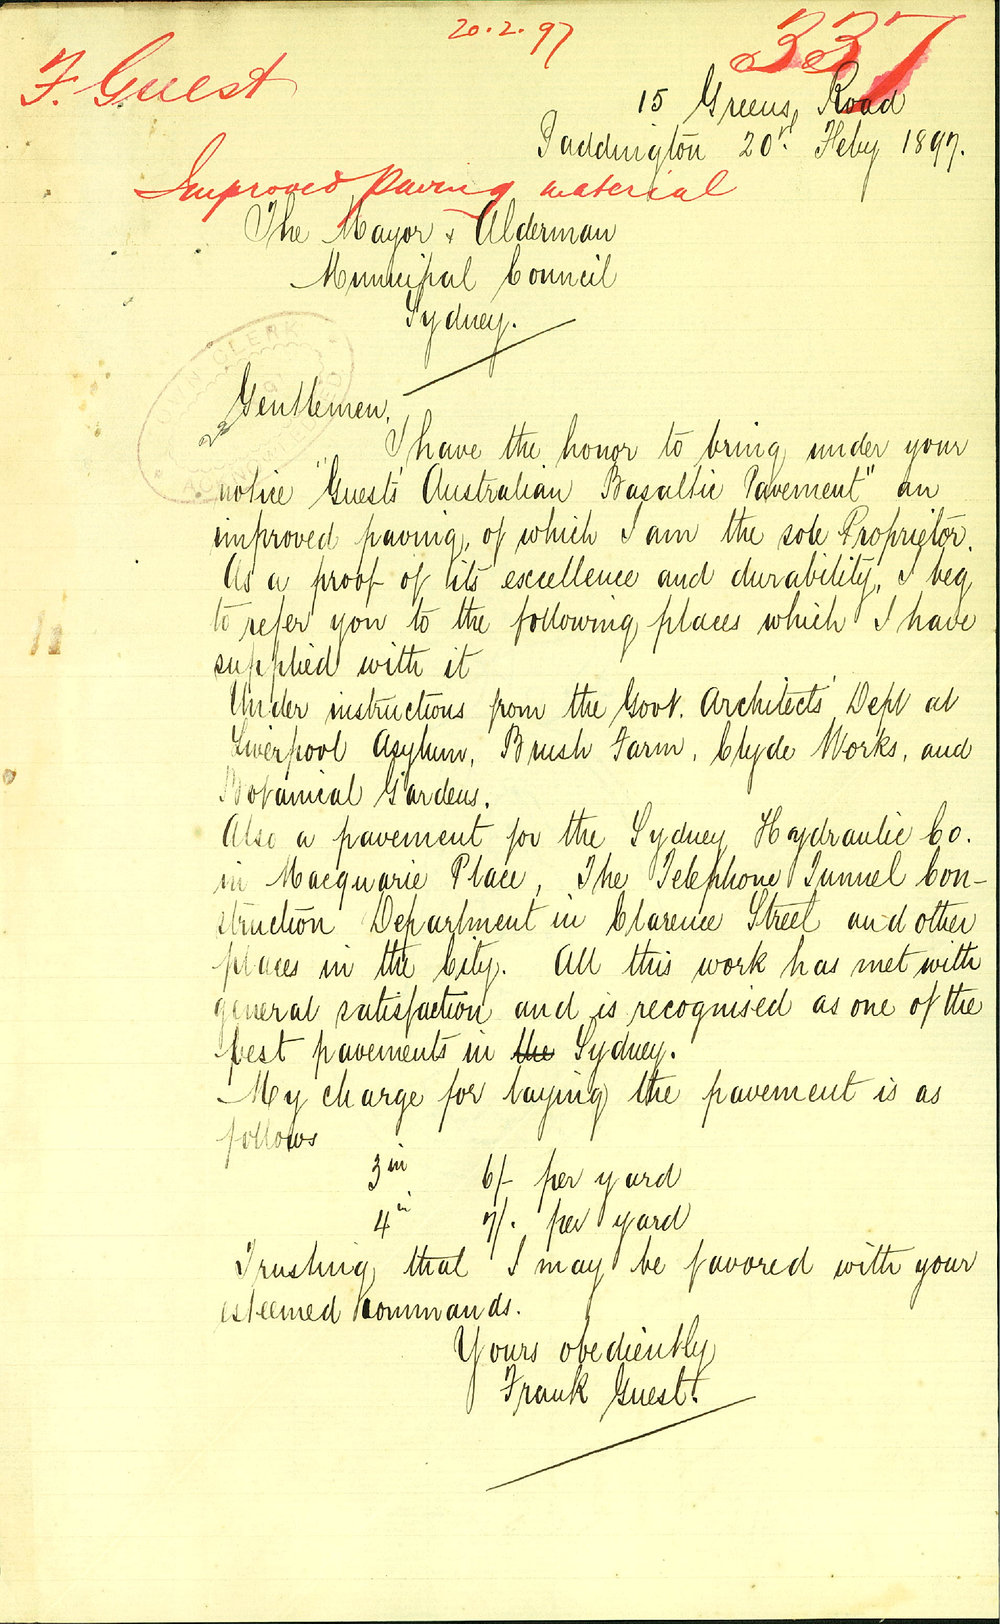 20.2.97
337
F. Guest
15 Greens Road
Paddington 20th Feby 1897.
Improved paving material
The Mayor & Alderman
Municipal Council
Sydney.
TOWN CLERK
Gentlemen,
I have the honor to bring under your
notice "Guests' Australian Basaltic Pavement" an
improved paving, of which I am the sole Proprietor.
As a proof of its excellence and durability, I beg
to refer you to the following places which I have
supplied with it
Under instructions from the Govt. Architects' Dept at
Liverpool Asylum, Brush Farm, Clyde Works, and
Botanical Gardens.
Also a pavement for the Sydney Hydraulic Co.
in Macquarie Place, The Telephone Tunnel Con-
struction Department in Clarence Street and other
places in the City. All this work has met with
general satisfaction and is recognised as one of the
best pavements in the Sydney.
My charge for laying the pavement is as
follows
3in 6/- per yard
4in 7/. per yard
Trusting that I may be favored with your
esteemed commands.
Yours obediently
Frank Guest.